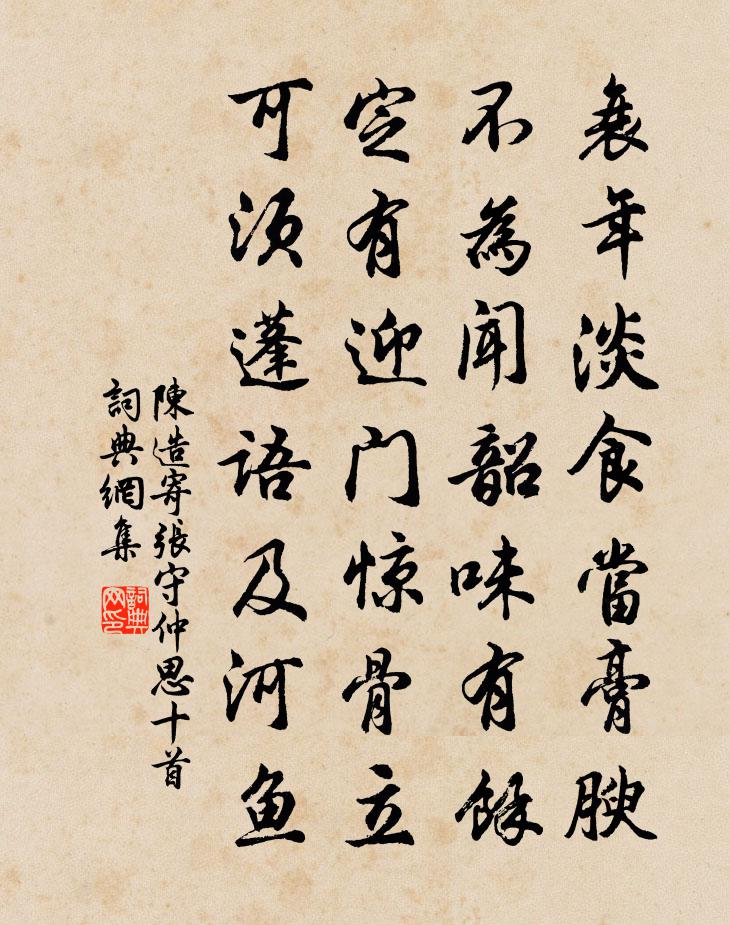 衰年淡食當膏腴
不為闻韶味有餘
定有迎门惊骨立
可须蓬语及河鱼
陳造寄張守仲思十首
詞典網集
詞典网印